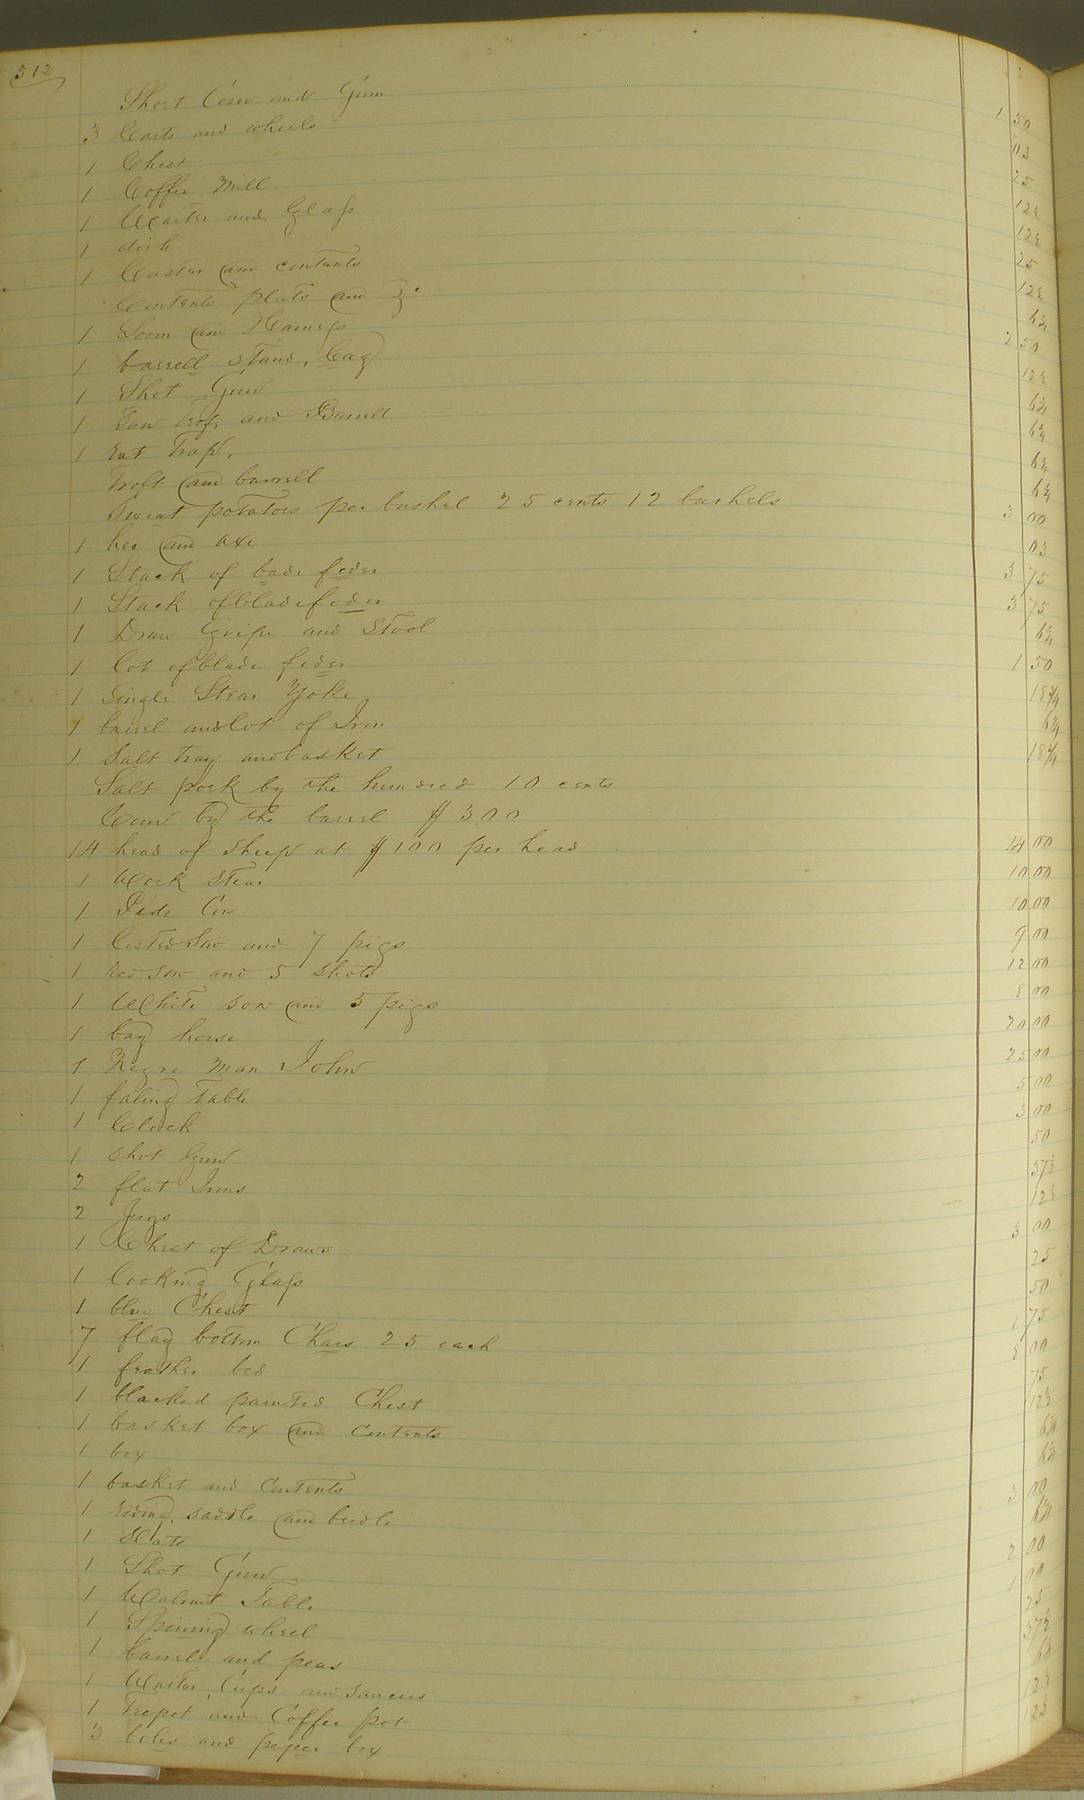 512
Short Corn and
3 Carts and wheels 1 50
1 Chest 03
1 Coffee Mill 25
1 Waiter and Glass 12½
1 dish 12½
1 Caster and contents 25
Contents plats and 12½
1 Loom and 6¼
1 barrell stand, Cag 2 50
1 Shot Gun 12½
1 and Barrell 6¼
1 Rat Trap, 6¼
Troft and barrell 6¼
Sweat potatoes per bushel 25 cents 12 bushels 3 00
1 hoe and axe 03
1 Stack of bade foder 3 75
1 Stack of blade foder 3 75
1 Draw Gripe and Stool 6¼
1 lot of blade foder 1 50
1 Single Stear Yoke 18¾
1 barrel and lot of Iron 6¼
1 Salt tray and basket 18¾
Salt pork by the hundred 10 cents
Corn by the barrel $300
14 head of Sheep at $100 per head 14 00
1 Work Stear 10 00
1 Pide Cow 10 00
1 listed Sow and 7 pigs 9 00
1 red sow and 5 shots 12 00
1 White sow and 5 pigs 8 00
1 bay horse 20 00
1 Negro Man John 25 00
1 faling Table 5 00
1 Clock 3 00
1 shot Gun 50
2 flat Irons 37½
2 Jugs 12½
1 Chest of Draws 3 00
1 looking Glass 25
1 blue Chest 50
7 flag bottom Chars 25 each 1 75
1 feather bed 8 00
1 blacked painted Chest 75
1 basket box and contents 12½
1 box 6¼
1 basket and contents 6¼
1 riding saddle and bridle 3 00
1 Slate 6¼
1 Shot Gun 2 00
1 Walnut Table 1 00
1 Spining wheel 25
1 barrel and peas 37½
1 Waiter, Cups and saucers 6¼
1 Teepot and Coffee pot 12½
3 boles and peper box 12½